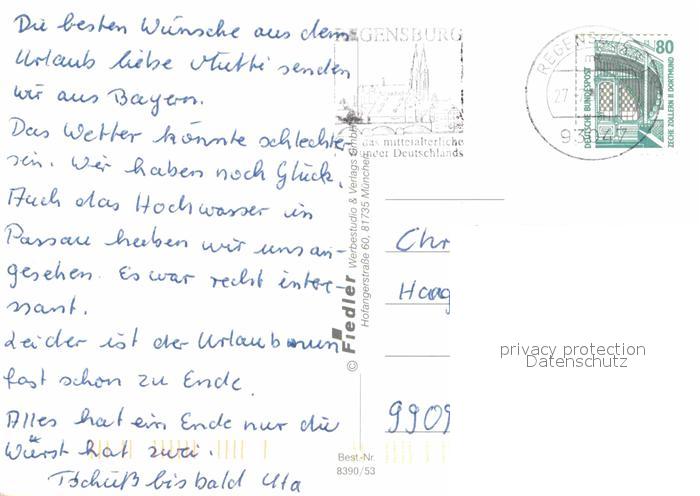 Die besten Wünsche aus dem
Urlaub liebe Mutti senden
wir aus Bayern.
Das Wetter könnte schlechter
sein. Wir haben noch Glück.
Auch das Hochwasser in
Passau haben wir uns an-
gesehen. Es war recht inter-
essant.
Leider ist der Urlaub nun
fast schon zu Ende.
Alles hat ein Ende nur die
Würst hat zwei.
Tschüß bis bald Uta
REGENSBURG
das mittelalterliche
Wunder Deutschlands
REGENSBURG
27
93047
80
DEUTSCHE BUNDESPOST
ZECHE ZOLLERN II DORTMUND
© Fiedler Werbestudio & Verlags GmbH
Hofangerstraße 60, 81735 München
Chr
Haag
9909
privacy protection
Datenschutz
Best.-Nr.
8390/53